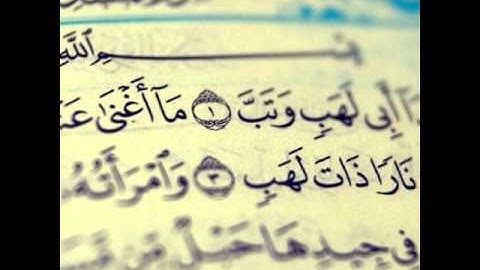 بِسْمِ ٱللَّهِ
آ أَبِى لَهَبٍ وَتَبَّ ١ مَآ أَغْنَىٰ عَنْ
نَارًا ذَاتَ لَهَبٍ ٣ وَٱمْرَأَتُهُۥ
فِى جِيدِهَا حَبْلٌ مِّن مَّسَدٍ